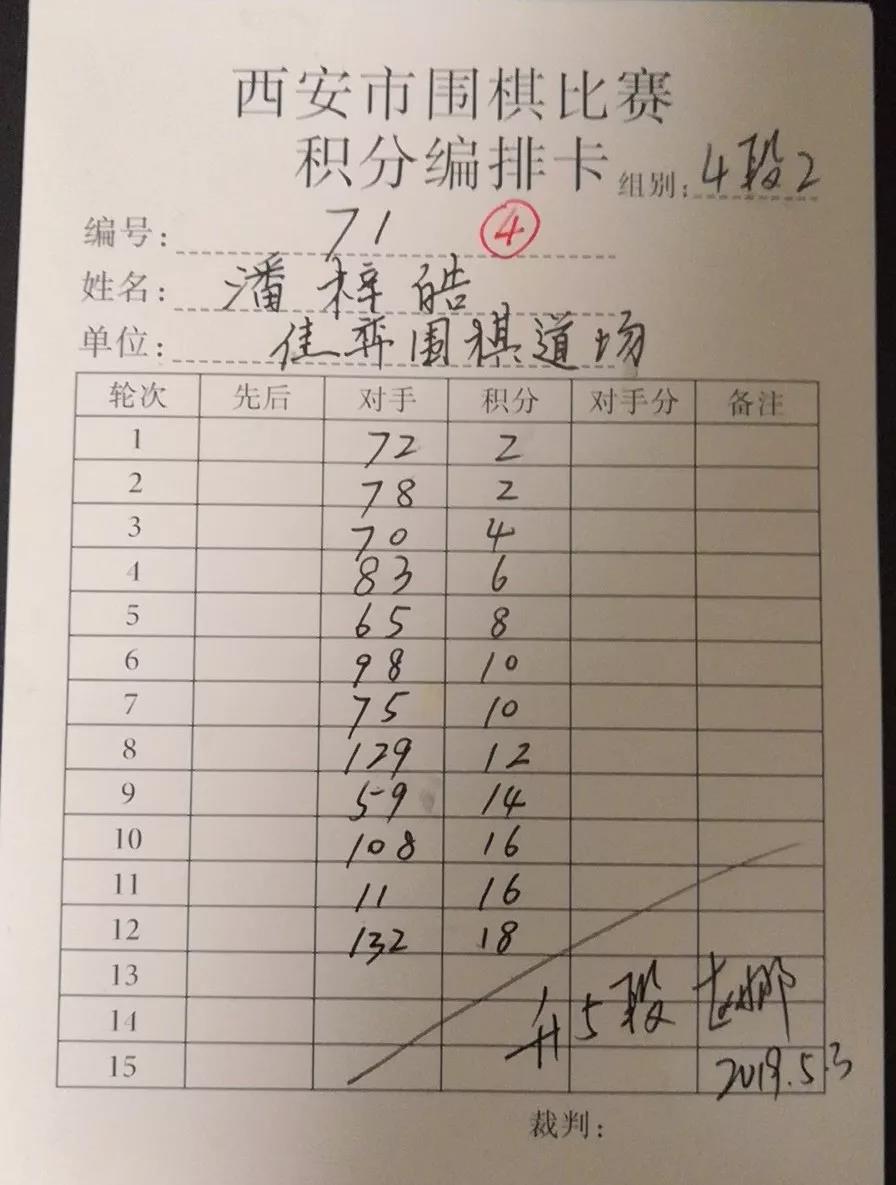 西安市围棋比赛
积分编排卡 组别: 4段2
编号: 71 ④
姓名: 潘梓皓
单位: 佳弈围棋道场
轮次 先后 对手 积分 对手分 备注
1 72 2
2 78 2
3 70 4
4 83 6
5 65 8
6 98 10
7 75 10
8 129 12
9 59 14
10 108 16
11 11 16
12 132 18
13
14 升5段
15 2019.5.3
裁判: